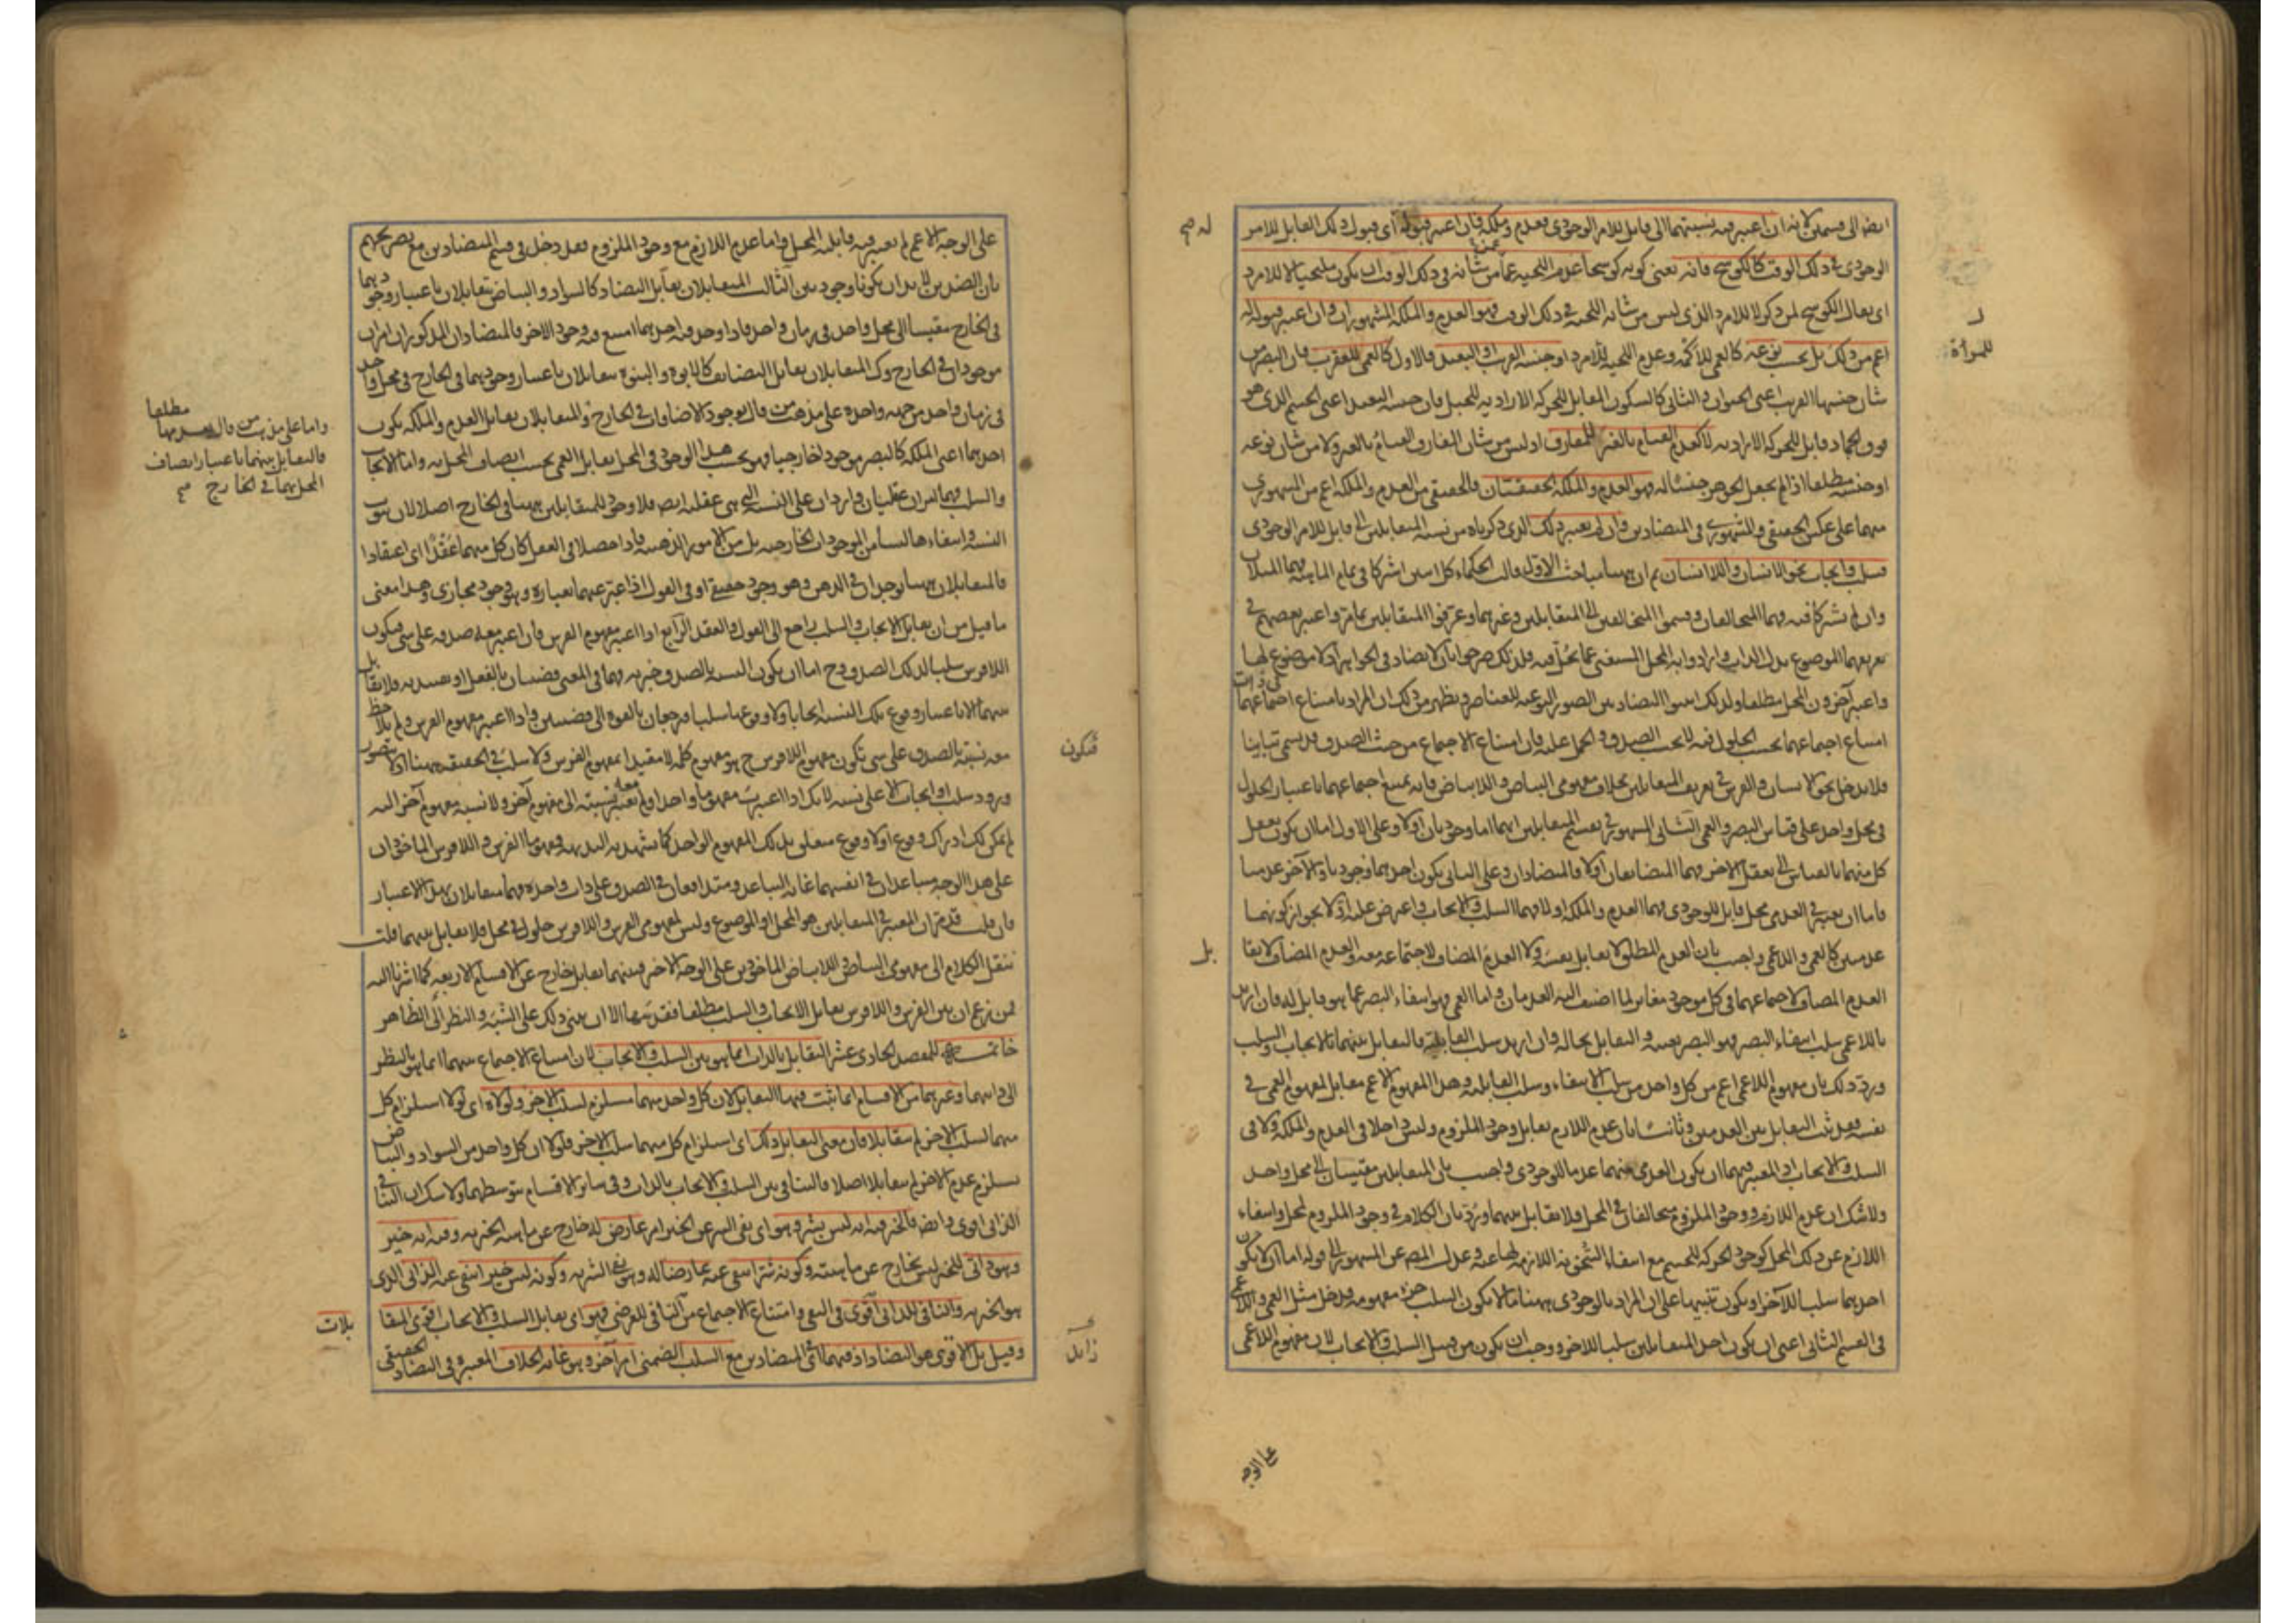 ايضا الى قسمين لانه ان اعتبر فيه نسبتهما الى قابل للامر الوجودى فعدم وملكة فان اعتبر قبوله اى قبول ذلك القابل للامر
له صح
الوجودى فى ذلك الوقت كالكوسج فانه يعنى كونه كوسجا عدم اللحية عما من شانه فى ذلك الوقت ان يكون ملتحيا لا للامرد
اى يقال الكوسج لمن ذكر لا للامرد الذى ليس من شانه اللحية فى ذلك الوقت فهو العدم والملكة المشهوران وان اعتبر قبوله له
اعم من ذلك بل بحسب نوعه كالعمى للاكمه وعدم اللحية للامرد او جنسه القريب او البعيد فالاول كالعمى للعقرب فان البصر من
للمرأة
شان جنسها القريب اعنى الحيوان والثانى كالسكون المقابل للحركة الارادية للجبل فان جنسه البعيد اعنى الجسم الذى هو
فوق الجماد قابل للحركة الارادية لا كعدم القيام بالغير للمفارق اذ ليس من شان المفارق القيام بالغير ولا من شان نوعه
او جنسه مطلقا اذا لم يجعل الجوهر جنسا له فهو العدم والملكة الحقيقيتان فالحقيقى من العدم والملكة اعم من المشهورى
منهما على عكس الحقيقى والمشهورى فى المتضادين وان لم يعتبر ذلك الذى ذكرناه من نسبة المتقابلين الى قابل للامر الوجودى
فسلب وايجاب نحو الانسان واللا انسان ثم ان ههنا مباحث الاول قالت الحكماء كل اثنين اشتركا فى تمام الماهية فهما المثلان
وان لم يشتركا فيه فهما المتخالفان وقسموا المتخالفين الى المتقابلين وغيرهما وعرفوا المتقابلين بما مر واعتبر بعضهم فى
تعريفهما الموضوع بدل الذات وارادوا به المحل المستغنى عما يحل فيه فلذلك صرحوا بان لا تضاد فى الجواهر اذ لا موضوع لها
واعتبر آخرون المحل مطلقا ولذلك اثبتوا التضاد بين الصور النوعية للعناصر ويظهر من ذلك ان المراد بامتناع اجتماعهما
امتناع اجتماعهما بحسب الحلول فيه لا بحسب الصدق والحمل عليه فان امتناع الاجتماع من حيث الصدق قد يسمى تباينا
فلا يدخل نحو الانسان والفرس فى تعريف المتقابلين بخلاف مفهومى البياض واللابياض فانه يمتنع اجتماعهما باعتبار الحلول
فى محل واحد على قياس البصر والعمى الثانى المشهور فى تقسيم المتقابلين انهما اما وجوديان او لا وعلى الاول اما ان يكون تعقل
كل منهما بالقياس الى تعقل الآخر فهما المتضايفان او لا فالمتضادان وعلى الثانى يكون احدهما وجوديا والآخر عدميا
فاما ان يعتبر فى العدمى محل قابل للوجودى فهما العدم والملكة او لا فهما السلب والايجاب واعترض عليه اذ لا يجوز كونهما
عدميين كالعمى واللاعمى واجيب بان العدم المطلق لا يقابل نفسه ولا العدم المضاف لاجتماعه معه والعدم المضاف لا يقا
بل
العدم المضاف لاجتماعهما فى كل موجود مغاير لما اضيف اليه العدمان واما العمى فهو انتفاء البصر عما هو قابل له فان اريد
باللاعمى سلب انتفاء البصر فهو البصر بعينه والتقابل بحاله وان اريد سلب القابلية فالتقابل بينهما بالايجاب والسلب
ورد ذلك بان مفهوم اللاعمى اعم من كل واحد من سلب الانتفاء وسلب القابلية وهذا المفهوم الاعم مقابل لمفهوم العمى فى
نفسه فقد ثبت التقابل بين العدميين وثانيا بان عدم اللازم يقابل وجود الملزوم وليس داخلا فى العدم والملكة ولا فى
السلب والايجاب اذ المعتبر فيهما ان يكون العدمى منهما عدما للوجودى واجيب بان المتقابلين مقيسان الى محل واحد
ولا شك ان عدم اللازم ووجود الملزوم متخالفان فى المحل فلا تقابل بينهما ويرد بان الكلام فى وجود الملزوم لمحل وانتفاء
اللازم عن ذلك المحل كوجود الحركة للجسم مع انتفاء السخونة اللازمة لها عنه وعدل المصنف عن المشهور الى قوله اما ان لا يكون
احدهما سلبا للآخر او يكون تنبيها على ان المراد بالوجودى ههنا ما لا يكون السلب جزء مفهومه فدخل مثل العمى واللاعمى
فى القسم الثانى اعنى ان يكون احد المتقابلين سلبا للآخر ووجب ان يكون من قبيل السلب والايجاب لان مفهوم اللاعمى
على الوجه
على الوجه الاعم لم يعتبر فيه قابلية المحل واما عدم اللازم مع وجود الملزوم فقد دخل فى قسم المتضادين مع تصريحهم
بان الضدين لا بد ان يكونا وجوديين الثالث المتقابلان تقابل التضاد كالسواد والبياض يتقابلان باعتبار وجودهما
فى الخارج مقيسا الى محل واحد فى زمان واحد فاذا وجد فيه احدهما امتنع فيه وجود الآخر فالمتضادان المذكوران امران
موجودان فى الخارج وكذا المتقابلان تقابل التضايف كالابوة والبنوة يتقابلان باعتبار وجودهما فى الخارج فى محل واحد
فى زمان واحد من جهة واحدة على مذهب من قال بوجود الاضافات فى الخارج والمتقابلان تقابل العدم والملكة يكون
واما على مذهب من قال بعدمها مطلقا
فالتقابل بينهما باعتبار اتصاف
المحل بهما فى الخارج صح
احدهما اعنى الملكة كالبصر موجودا خارجيا فهو بحسب هذا الوجود فى المحل يقابل العمى بحسب اتصاف المحل به واما الايجاب
والسلب فهما امران عقليان واردان على النسبة التى هى عقلية ايضا فلا وجود للمتقابلين ههنا فى الخارج اصلا لان ثبوت
النسبة وانتفاءها ليسا من الموجودات الخارجية بل من الامور الذهنية فاذا حصلا فى العقل كان كل منهما عقدا اى اعتقادا
فالمتقابلان ههنا يوجدان فى الذهن وهو وجود حقيقى او فى القول اذا عبر عنهما بعبارة وهو وجود مجازى وهذا معنى
ما قيل من ان تقابل الايجاب والسلب راجع الى القول والعقد الرابع اذا اعتبر مفهوم الفرس فان اعتبر معه صدقه على شىء فيكون
اللافرس سلبا لذلك الصدق وح اما ان يكون النسبة بالصدق خبرية فهما فى المعنى قضيتان بالفعل او تقييدية فلا تقابل
بينهما الا باعتبار وقوع تلك النسبة ايجابا ولا وقوعها سلبا فيرجعان بالقوة الى قضيتين واذا اعتبر مفهوم الفرس ولم يلاحظ
معه نسبته بالصدق على شىء فيكون مفهوم اللافرس ح هو مفهوم كلمة لا مقيدا بمفهوم الفرس ولا سلب فى الحقيقة ههنا اذ لا يتصور
فيكون
ورود سلب او ايجاب الا على نسبة لانك اذا اعتبرت مفهوما واحدا ولم تعتبر معه نسبته الى مفهوم آخر ولا نسبة مفهوم آخر اليه
لم يمكن لك ادراك وقوع او لا وقوع متعلق بذلك المفهوم الواحد كما تشهد به البديهة فمفهوما الفرس واللافرس المأخوذان
على هذا الوجه متباعدان فى انفسهما غاية التباعد ومتدافعان فى الصدق على ذات واحدة فهما متقابلان بهذا الاعتبار
فان قلت قد مر ان المعتبر فى المتقابلين هو المحل او الموضوع وليس لمفهومى الفرس واللافرس حلول فى محل فلا تقابل بينهما قلت
ننقل الكلام الى مفهومى البياض واللابياض المأخوذين على الوجه الآخر فبينهما تقابل خارج عن الاقسام الاربعة كما اشرنا اليه
فمن زعم ان بين الفرس واللافرس تقابل الايجاب والسلب مطلقا فقد سها الا ان يبنى ذلك على الشبه والنظر الى الظاهر
خاتمة للمقصد الحادى عشر التقابل بالذات انما هو بين السلب والايجاب لان امتناع الاجتماع بينهما انما هو بالنظر
الى ذاتيهما وغيرهما من الاقسام انما يثبت فيها التقابل لان كل واحد منهما مستلزم لسلب الآخر ولولاه اى لولا استلزام كل
منهما لسلب الآخر لم يتقابلا فان معنى التقابل ذلك اى استلزام كل منهما سلب الآخر فلولا ان كل واحد من السواد والبياض
يستلزم عدم الآخر لم يتقابلا اصلا فالتنافى بين السلب والايجاب بالذات وفى سائر الاقسام بتوسطهما ولا شك ان التنافى
الذاتى اقوى وايضا فالخير فيه انه ليس بشر وهو اى نفى الشر عن الخير امر عارض له خارج عن ماهية الخيرية وفيه انه خير
وهو ذاتى للخير ليس بخارج عن ماهيته وكونه شرا ينفى عنه عارضا له وهو نفى الشرية وكونه ليس خيرا ينفى عنه الذاتى الذى
هو الخيرية والنافى للذاتى اقوى فى النفى وامتناع الاجتماع من النافى للعرضى فهو اى تقابل السلب والايجاب اقوى المتقا
بلات
وقيل بل الاقوى هو التضاد اذ فيهما اى فى المتضادين مع السلب الضمنى امر آخر وهو غاية الخلاف المعتبرة فى التضاد الحقيقى
زايد